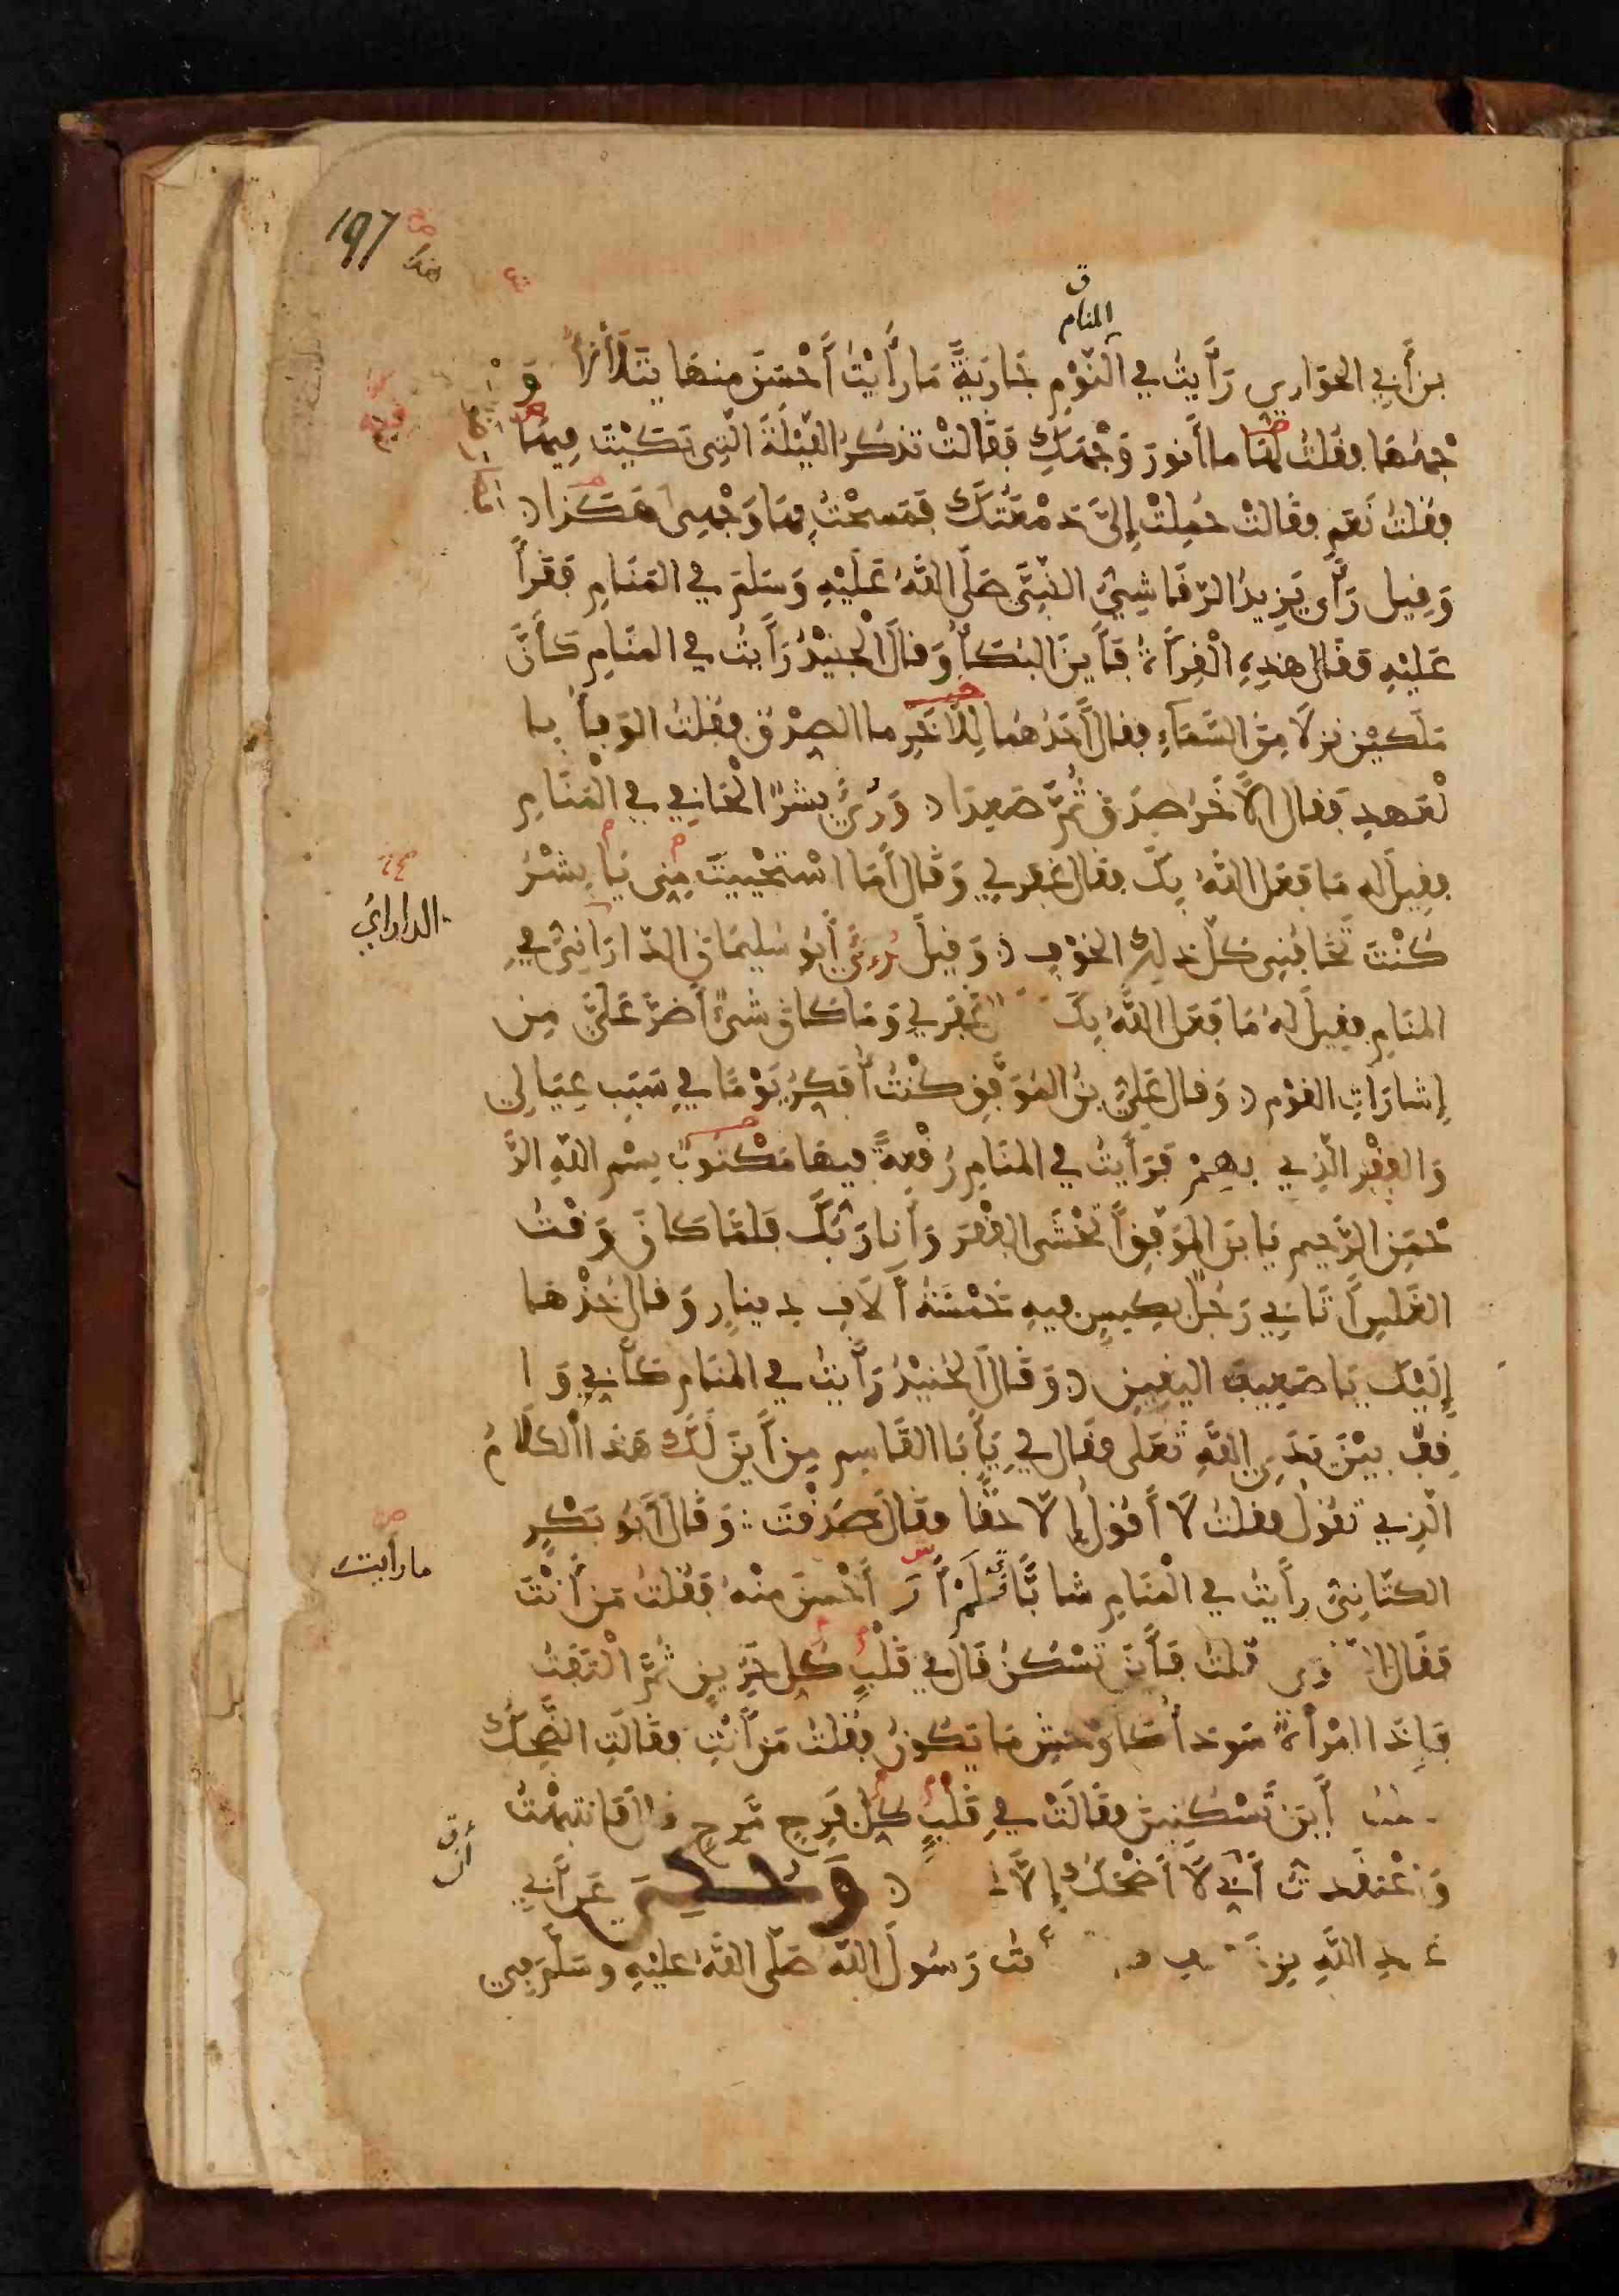 197
المنام
بن أَبِي الحَوَارِي رَأَيتُ في النَّوْمِ جَارِيَةً مَا رَأَيْتُ أَحْسَنَ منهَا يتَلَأْلأُ وَ
جْهُهَا فقلتُ لهَا ما أَنورَ وَجْهَكِ فَقَالتْ تذكُرُ اللَّيْلَةَ الَّتِي بَكَيْتَ فِيهَا
فقلتُ نَعَم فقَالتْ حُمِلتْ إِلَيَّ دَمْعَتُكَ فَمَسحْتُ بِهَا وَجْهِي هَكَذَا
وَقِيل رَأَى يَزِيدُ الرَّقَاشِيُّ النَّبِيَّ صَلَّى اللَّهُ عَلَيْهِ وَسَلمَ في المَنَامِ فَقَرأَ
عَلَيْهِ فقَال هذِهِ الْقِرَأَةُ فَأَينَ البُكَاُ وَقالَ الْجنَيْدُ رَأَيتُ في المَنَامِ كَأَنَّ
مَلَكيْنِ نزلَا مِنَ السَّمَاءِ فقال أَحَدُهُمَا لِلْأَخَرِ ما الصِدْقُ فقلتُ الوَفَاُ با
لْعَهدِ فقال الأَخَرُ صدَقَ ثُمَّ صَعِدَا وَرُئِيَ بشرٌ الْحَافِي في الْمَنَامِ
فقِيلَ له مَا فَعَلَ اللَّهُ بِكَ فقَال غَفَرَ لِي وَقَال أَمَا اسْتَحْيَيتَ مِنِي يَا بِشْرُ
الداراني
كُنْتَ تَخَافُنِي كُلَّ ذلِكَ الخَوْفِ وَقِيلَ رُءِيَ أَبُو سُليمَانَ الدَّارَانِيُّ في
المَنَامِ فقِيلَ لَهُ مَا فَعَلَ اللَّهُ بِكَ غَفَرَ لِي وَمَا كَانَ شَيْءٌ أَضَرَّ عَلَيَّ مِن
إِشارَاتِ القَوْمِ وَقالَ عَلِيُّ بنُ المُوَفَّقِ كنْتُ أُفَكِرُ يَوْمًا في سَبَبِ عِيَالِي
وَالفقْرِ الَّذِي بهِمْ فَرَأَيتُ في المنَامِ رُقْعَةً فيهَا مَكْتُوبٌ بِسْم اللَّهِ الرَّ
حْمَنِ الرَّحيم يَا بنَ المُوَفَّقِ أَتَخْشَى الفَقْرَ وَأَنا رَبُّكَ فَلمَّا كَانَ وَقْتُ
الغَلَسِ أَتَانِي رَجُلٌ بكِيسٍ فيهِ خَمْسَةُ أَلَافِ دِينارٍ وَقالَ خُذْهَا
إِلَيْكَ يَا ضَعِيفَ اليَقِينِ وَقَالَ الجُنَيْدُ رَأَيتُ في المنَام كَأَنِي وَا
قِفٌ بيْنَ يَدَيِ اللَّهِ تعَلى فقَال لِي يَأَبَا القَاسِمِ مِن أَينَ لَكَ هَذَا الْكَلَامُ
الَّذِي تقُولُ فقلتُ لَا أَقولُ إِلَّا حَقًّا فقَالَ صَدَقْتَ وَقَالَ أَبُو بَكْرٍ
ما رأيت
الكتَّانِيُّ رأَيتُ في الْمَنَامِ شابًّا لَمْ أَرَ أَحْسنَ منْهُ فقُلتُ مَن أَنْتَ
فَقَال التقوى قلتُ فَأَينَ تَسْكنُ قَال في قَلْبِ كُلِ حَزِينٍ ثُمَّ الْتَفَتُ
فَإِذَا امْرَأَةٌ سَودَاُ كَأَوْحَشِ مَا يَكُونُ فقُلتُ مَن أَنْتِ فقَالَتِ الضَّحِكُ
فقلتُ أَينَ تَسْكُنِينَ فقَالَتْ في قَلْبِ كُلِ فَرِحٍ مَرِحٍ قَالَ فَانتبهْتُ
وَاعْتقَدتُ أَنِي لَا أَضْحَكُ إِلَّا وَحُكِيَ عَن أَبِي
عبدِ اللَّهِ بنِ رَسُولَ اللَّهِ صَلَّى اللَّهُ عليْهِ وسَلَّمَ فِي